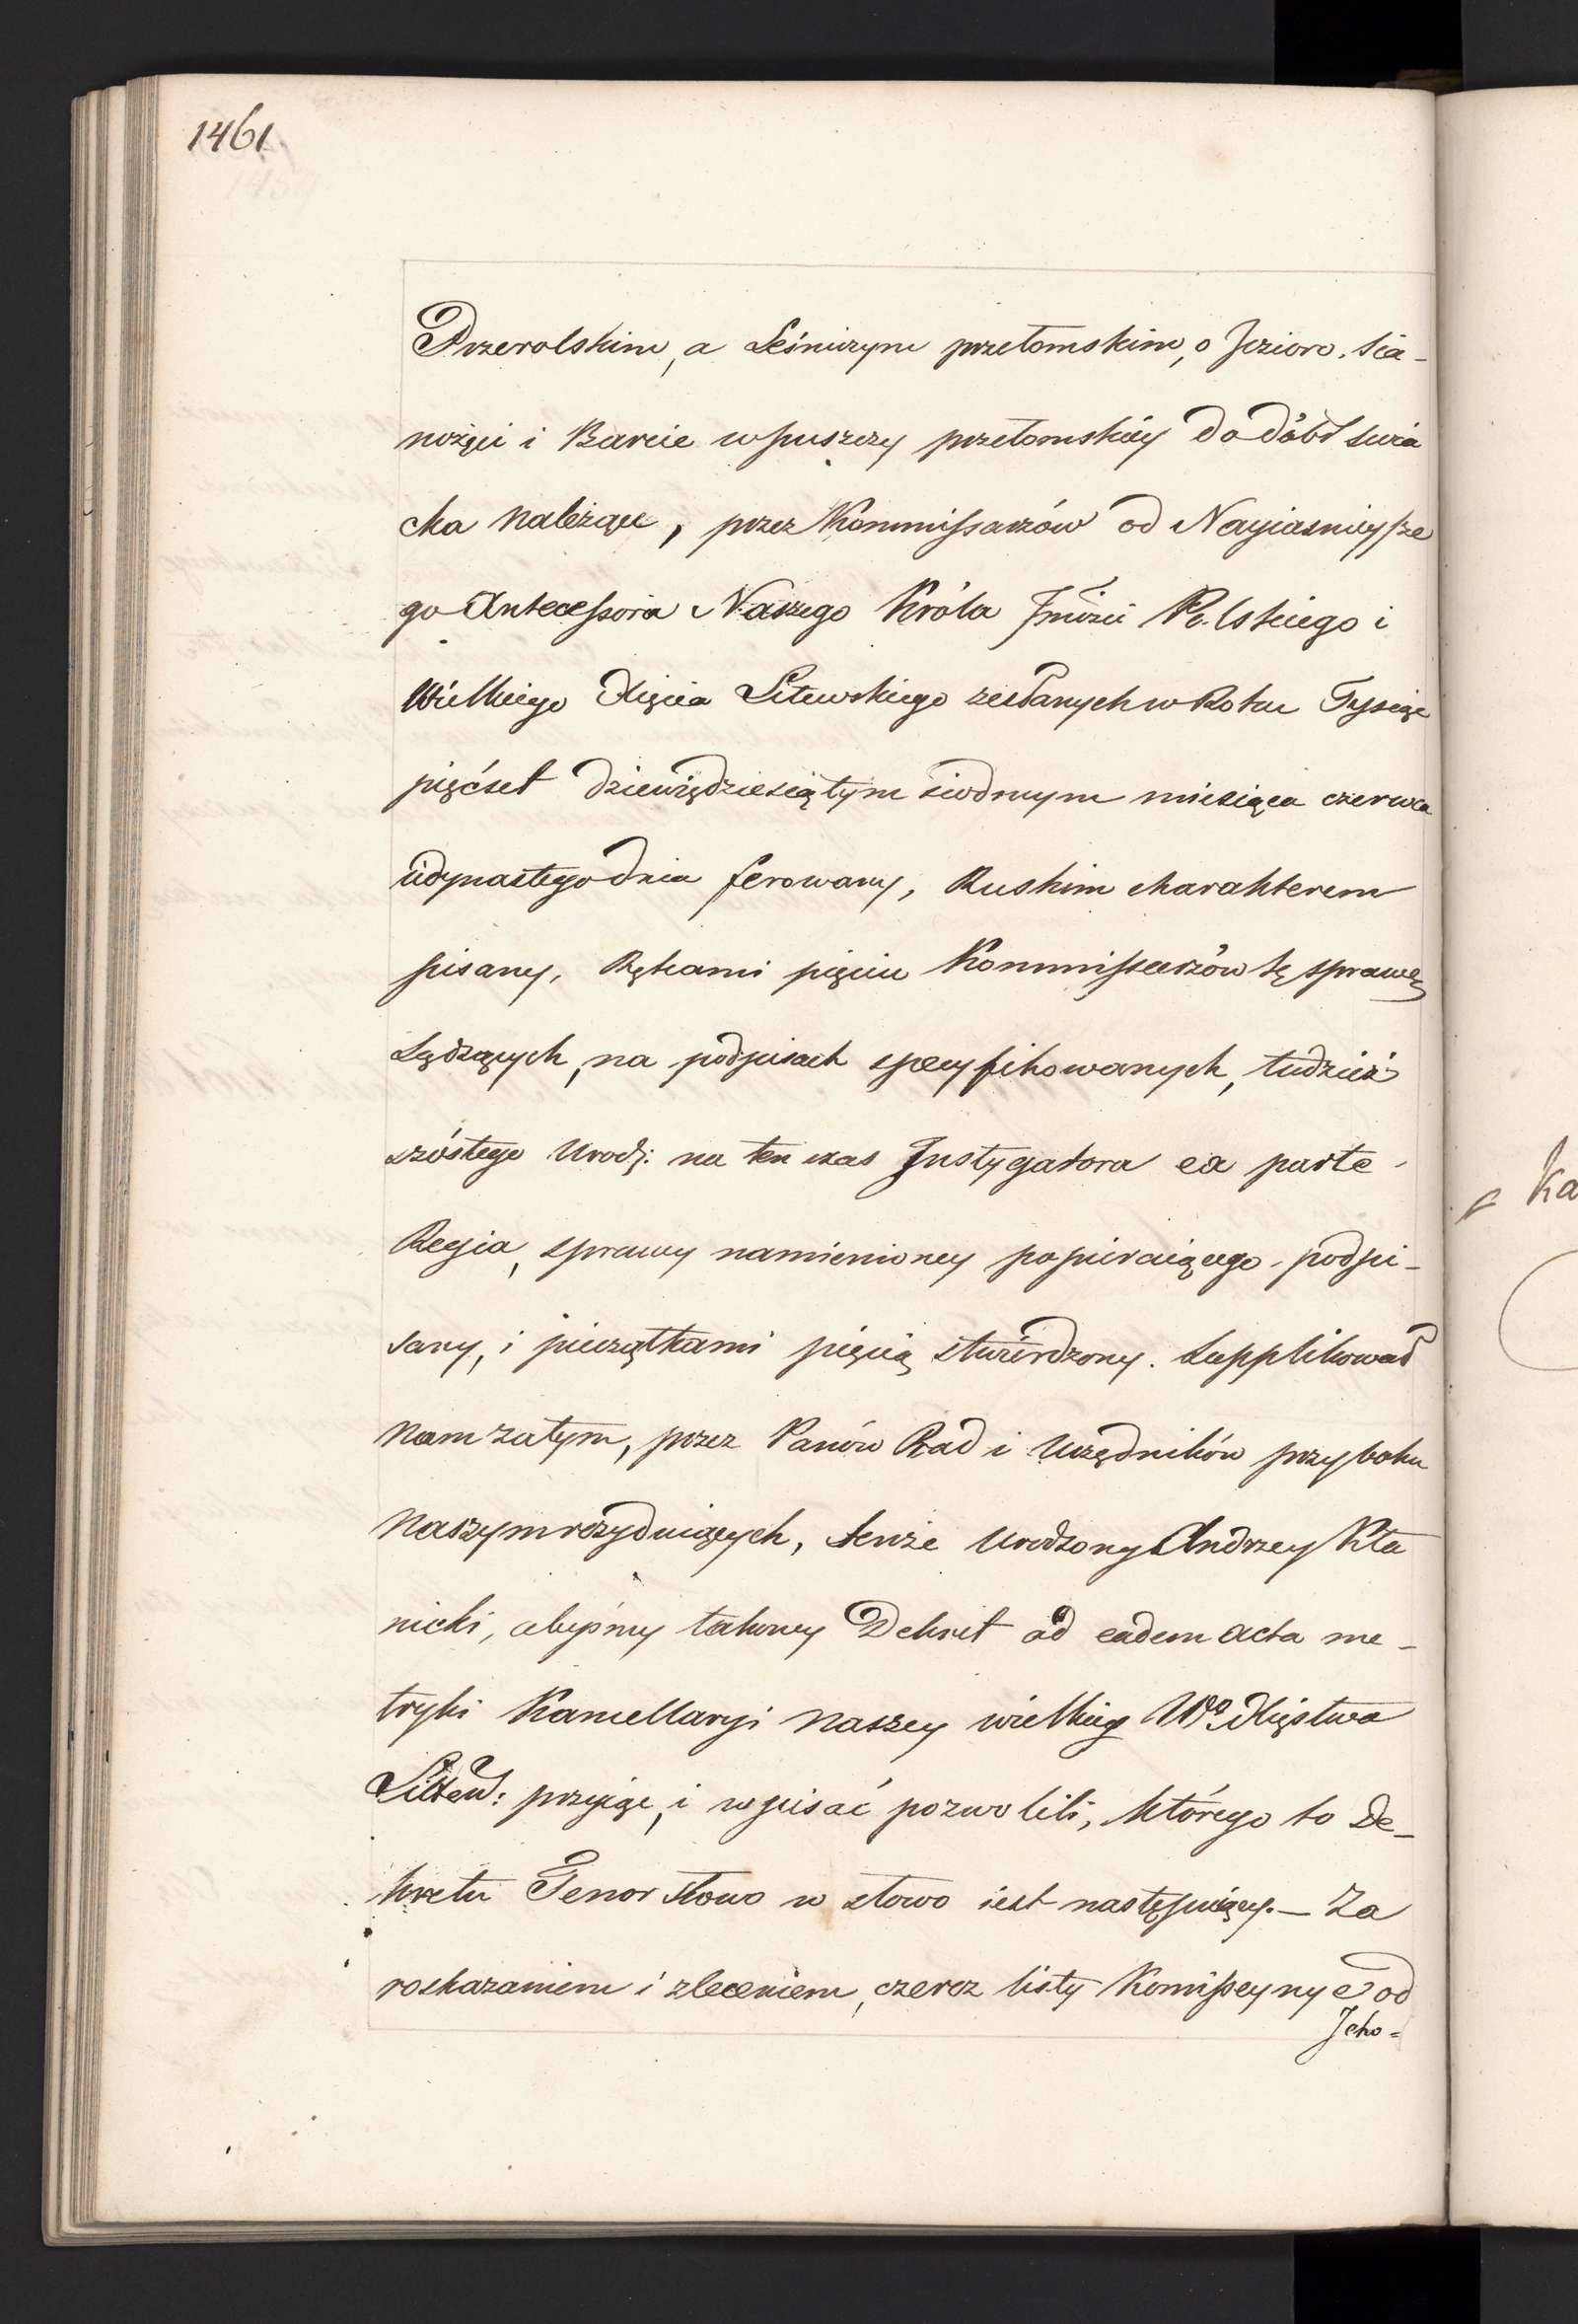 1461
Przerolskim, a Leśniczym przełomskim, o Jezioro, Sia-
nożęci i Barcie w puszczy przełomskiey do dóbr Swia
cka należące, przez Kommissarzów od Nayiasnieysze
go Antecessora Naszego Króla Jmści Polskiego i
Wielkiego Xięcia Litewskiego zesłanych w Roku Tysiąc
pięćset dziewiędziesiątym siodmym miesiąca czerwca
iedynastego dnia ferowany, Ruskim charakterem
pisany, Rękami pięciu Kommissarzów tę sprawę
sądzących, na podpisach specyfikowanych, tudzież
szóstego Urodz: na ten czas Instygatora ea parte
Regia, sprawy namienioney popieraiącego, podpi-
sany, i pieczątkami pięcią ztwierdzony. Supplikował
Nam zatym, przez Panów Rad i Urzędników przy boku
Naszym rezyduiących, tenże Urodzony Andrzey Kła
nicki, abyśmy takowy Dekret ad eadem acta me-
tryki Kancellaryi Naszey wielkiey Wo Xięstwa
Litew: przyiąć, i wpisać pozwolili, którego to De-
kretu Tenor słowo w słowo iest następuiący. - Za
roskazaniem i zleceniem, czerez listy Komissyynye od
Jeho=
Ka